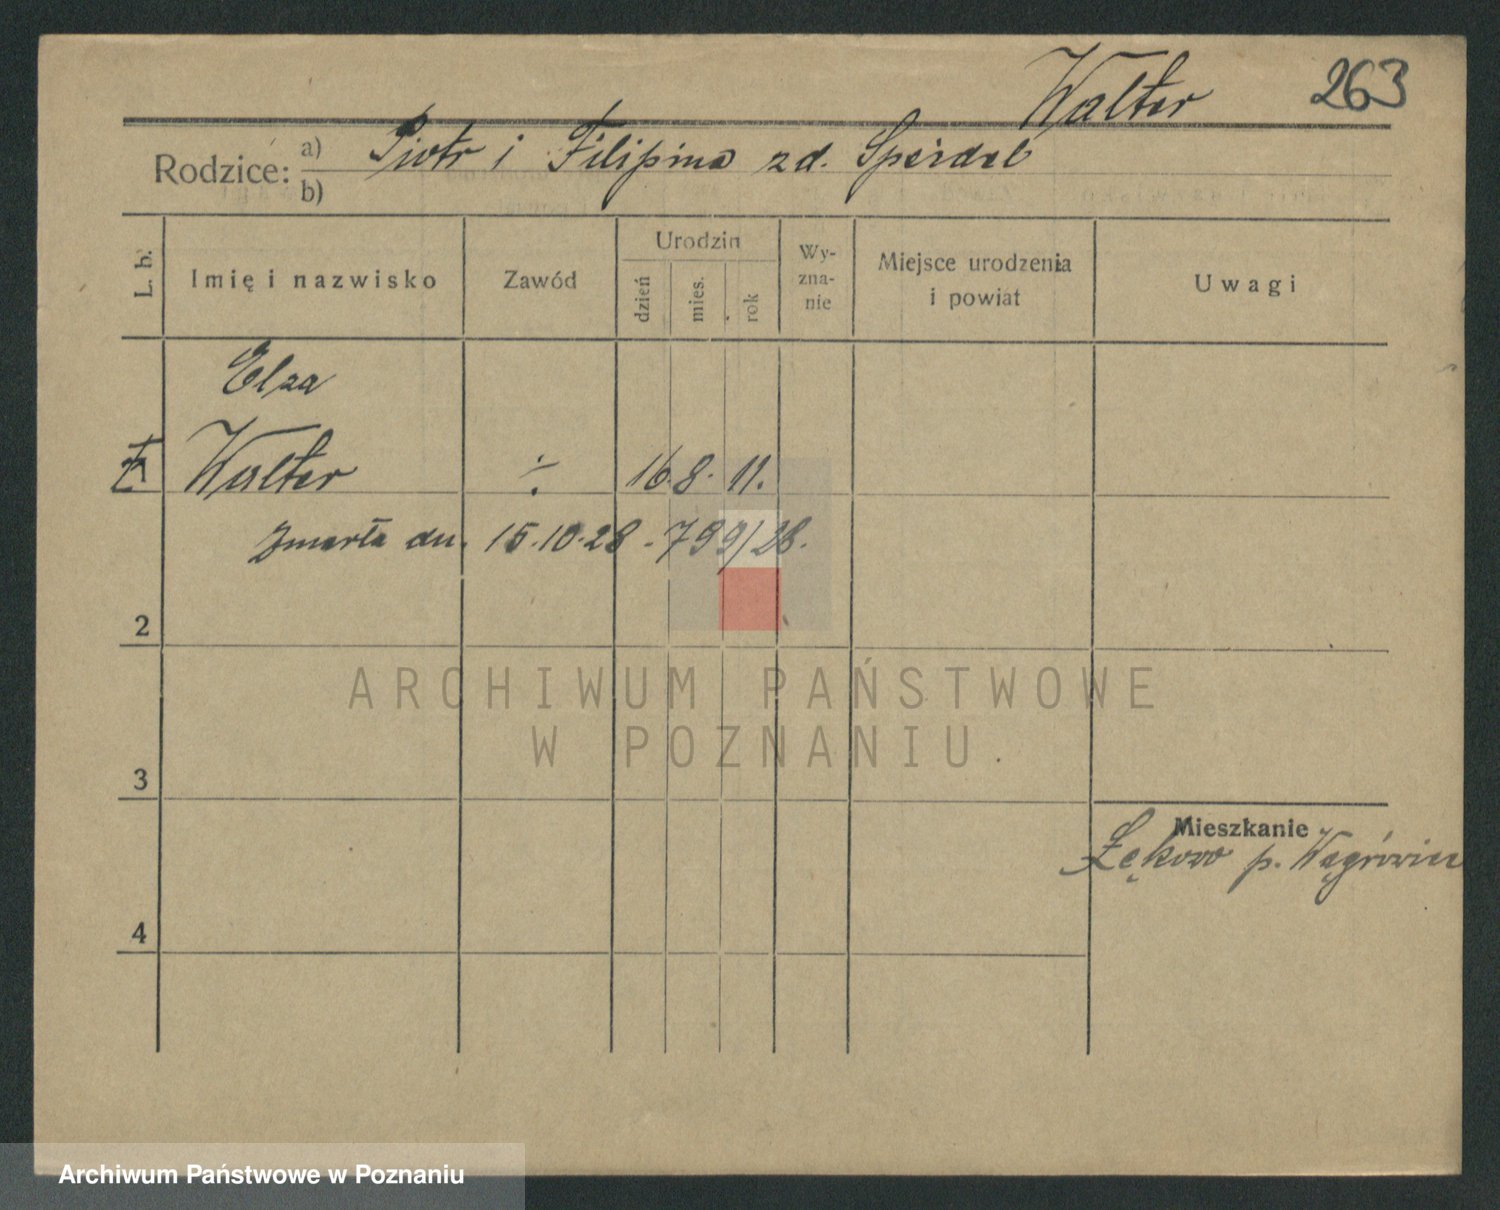 Walter 263
Rodzice: a) Piotr i Filipina zd. Speidel
b)
L. b. Imię i nazwisko Zawód Urodzin dzień mies. rok Wy-zna-nie Miejsce urodzenia i powiat Uwagi
Elza
1 Walter ÷ 16. 8. 11.
zmarła dn. 15.10.28 - 799/28.
2
ARCHIWUM PAŃSTWOWE
W POZNANIU
3
Mieszkanie
Łękowo p. Wągrowiec
4
Archiwum Państwowe w Poznaniu